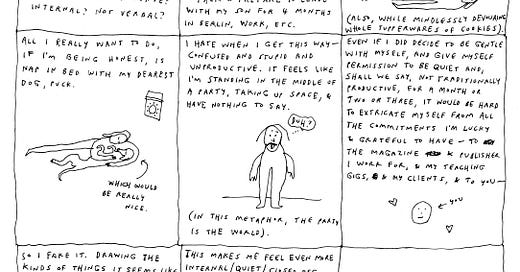 INTERNAL? NOT VERBAL?
WITH MY SON FOR 4 MONTHS
IN BERLIN, WORK, ETC.
(ALSO, WHILE MINDLESSLY DEVOURING
WHOLE TUPPERWARES OF COOKIES).
ALL I REALLY WANT TO DO,
IF I'M BEING HONEST, IS
NAP IN BED WITH MY DEAREST
DOG, PUCK.
WHICH WOULD
BE REALLY
NICE.
I HATE WHEN I GET THIS WAY—
CONFUSED AND STUPID AND
UNPRODUCTIVE. IT FEELS LIKE
I'M STANDING IN THE MIDDLE OF
A PARTY, TAKING UP SPACE, &
HAVE NOTHING TO SAY.
DUH?
(IN THIS METAPHOR, THE PARTY
IS THE WORLD).
EVEN IF I DID DECIDE TO BE GENTLE
WITH MYSELF, AND GIVE MYSELF
PERMISSION TO BE QUIET AND,
SHALL WE SAY, NOT TRADITIONALLY
PRODUCTIVE, FOR A MONTH OR
TWO OR THREE, IT WOULD BE HARD
TO EXTRICATE MYSELF FROM ALL
THE COMMITMENTS I'M LUCKY
& GRATEFUL TO HAVE — TO
THE MAGAZINE & PUBLISHER
I WORK FOR, & MY TEACHING
GIGS, & MY CLIENTS, & TO YOU—
YOU
SO I FAKE IT. DRAWING THE
KINDS OF THINGS IT SEEMS LIKE
THIS MAKES ME FEEL EVEN MORE
INTERNAL/QUIET/CLOSED OFF